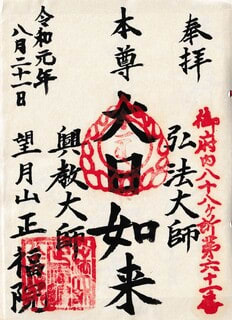 奉拝
御府内八十八ヶ所第六十一番
弘法大師
本尊 大日如来
興教大師
令和元年
八月二十一日
望月山正福院